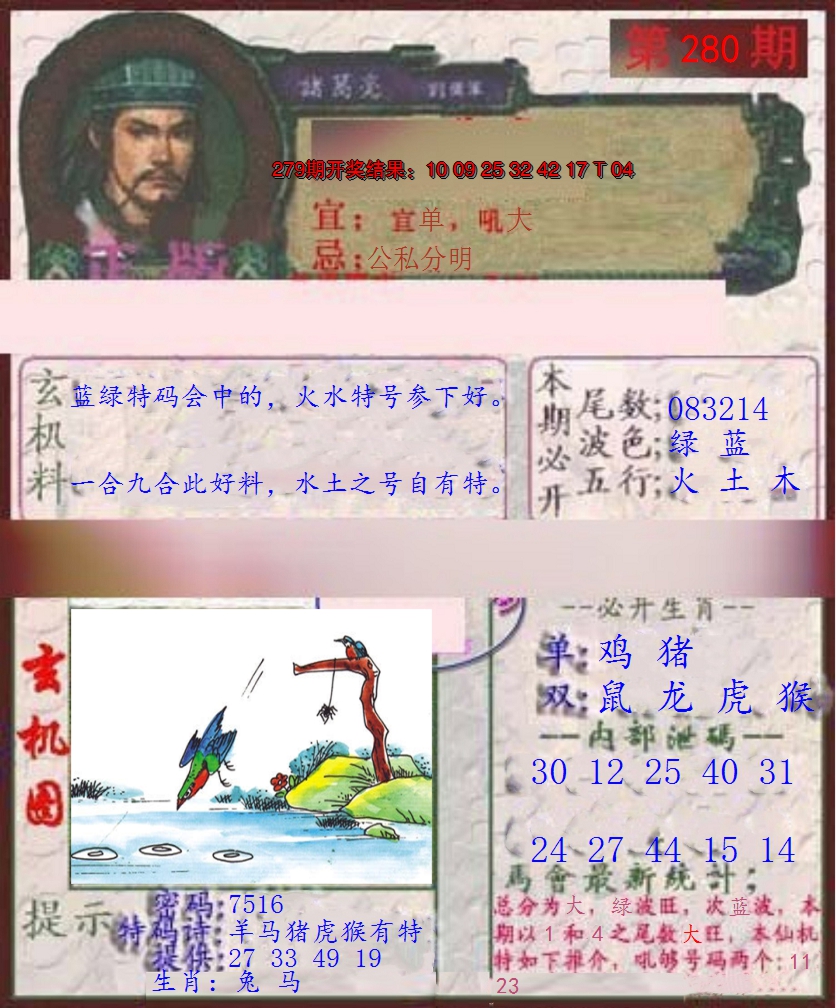 第 280 期
諸葛亮 劉備軍
279期开奖结果：10 09 25 32 42 17 T 04
宜：宜单，吼大
忌：公私分明
正版
玄机料
蓝绿特码会中的，火水特号参下好。
一合九合此好料，水土之号自有特。
本期必开
尾数：083214
波色：绿 蓝
五行：火 土 木
玄机图
--必开生肖--
单：鸡 猪
双：鼠 龙 虎 猴
--内部泄码--
30 12 25 40 31
24 27 44 15 14
馬會最新統計；
总分为大，绿波旺，次蓝波，本
期以1和4之尾数大旺，本仙机
特如下推介，吼够号码两个：11
23
提示
密码：7516
特码诗：羊马猪虎猴有特
提供：27 33 49 19
生肖：兔 马